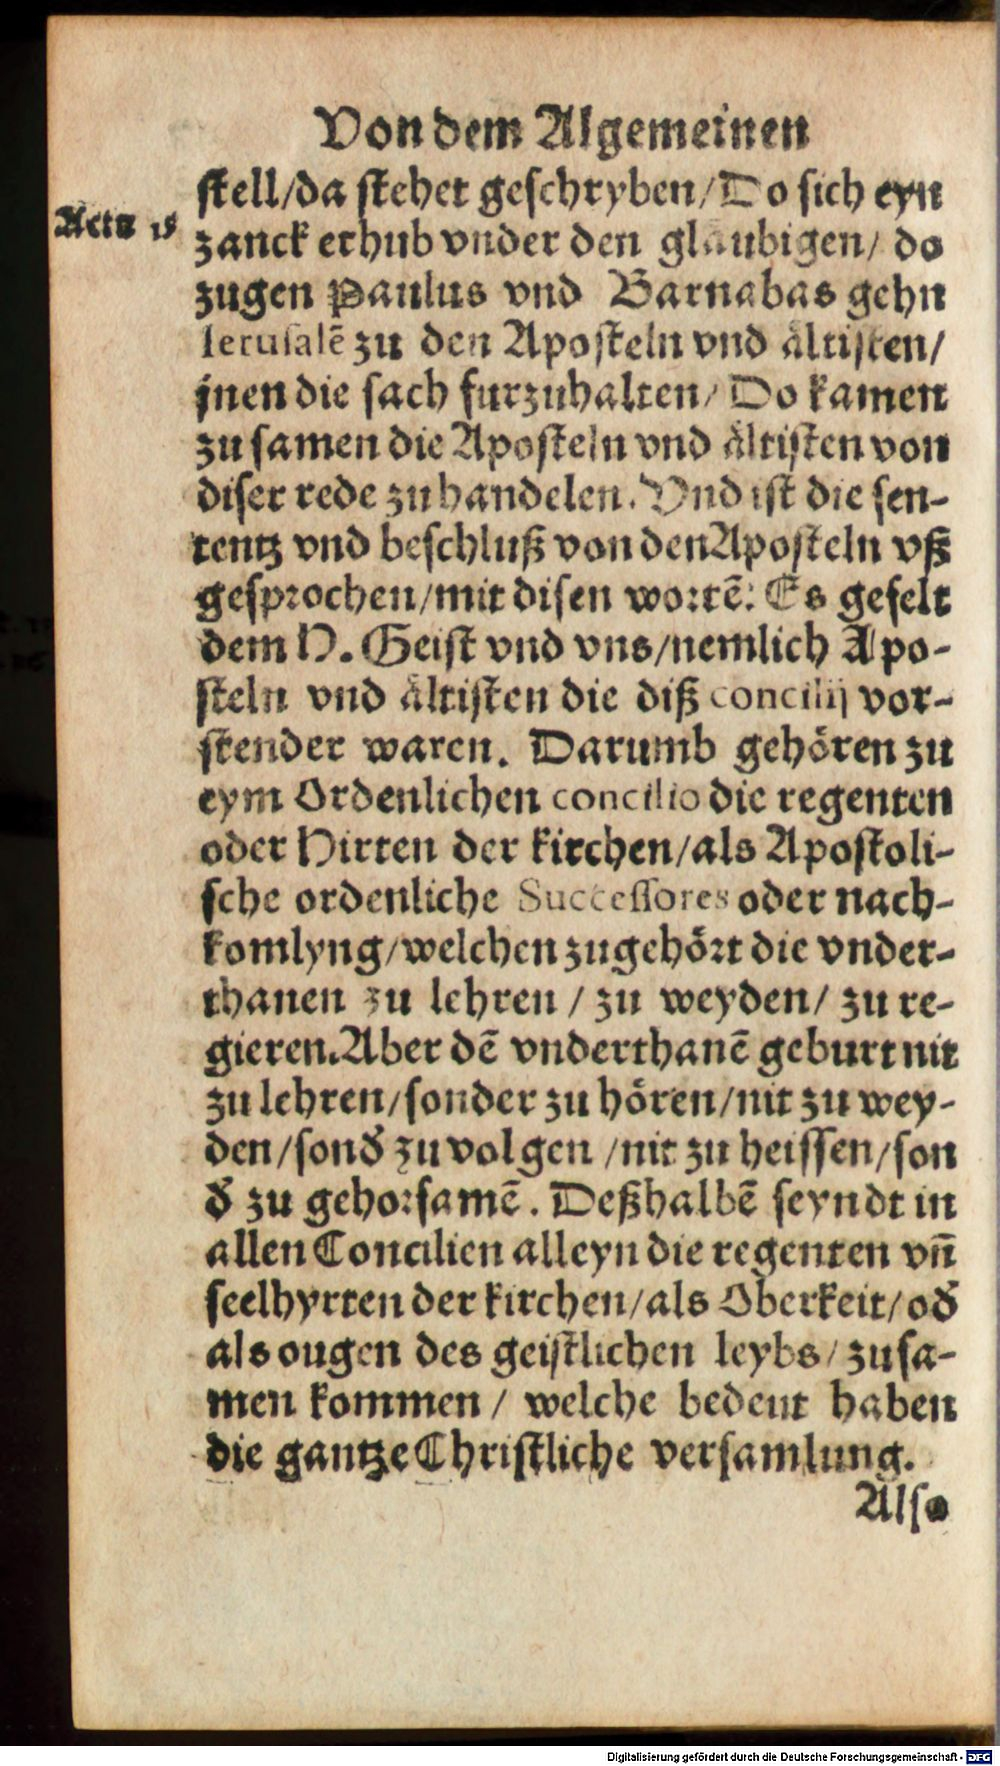 Von dem Algemeinen
stell/da stehet geschryben/Do sich eyn
Acta 15
zanck erhub vnder den glaubigen/ do
zugen Paulus vnd Barnabas gehn
Ierusalē zu den Aposteln vnd ältisten/
jnen die sach furzuhalten/ Do kamen
zu samen die Aposteln vnd ältisten von
diser rede zu handelen. Vnd ist die sen-
tentz vnd beschluß von den Aposteln vß
gesprochen/mit disen wortē: Es gefelt
dem H. Geist vnd vns/nemlich Apo-
steln vnd ältisten die diß concilij vor-
stender waren. Darumb gehören zu
eym Ordenlichen concilio die regenten
oder Hirten der kirchen/als Apostoli-
sche ordenliche Successores oder nach-
komlyng/welchen zugehört die vnder-
thanen zu lehren / zu weyden/ zu re-
gieren. Aber dē vnderthanē geburt nit
zu lehren/sonder zu hören/nit zu wey-
den/sonđ zu volgen /nit zu heissen/son
đ zu gehorsamē. Deßhalbē seyndt in
allen Concilien alleyn die regenten vn̄
seelhyrten der kirchen/als Oberkeit/ođ
als ougen des geistlichen leybs/ zusa-
men kommen / welche bedeut haben
die gantze Christliche versamlung.
Also
Digitalisierung gefördert durch die Deutsche Forschungsgemeinschaft - DFG